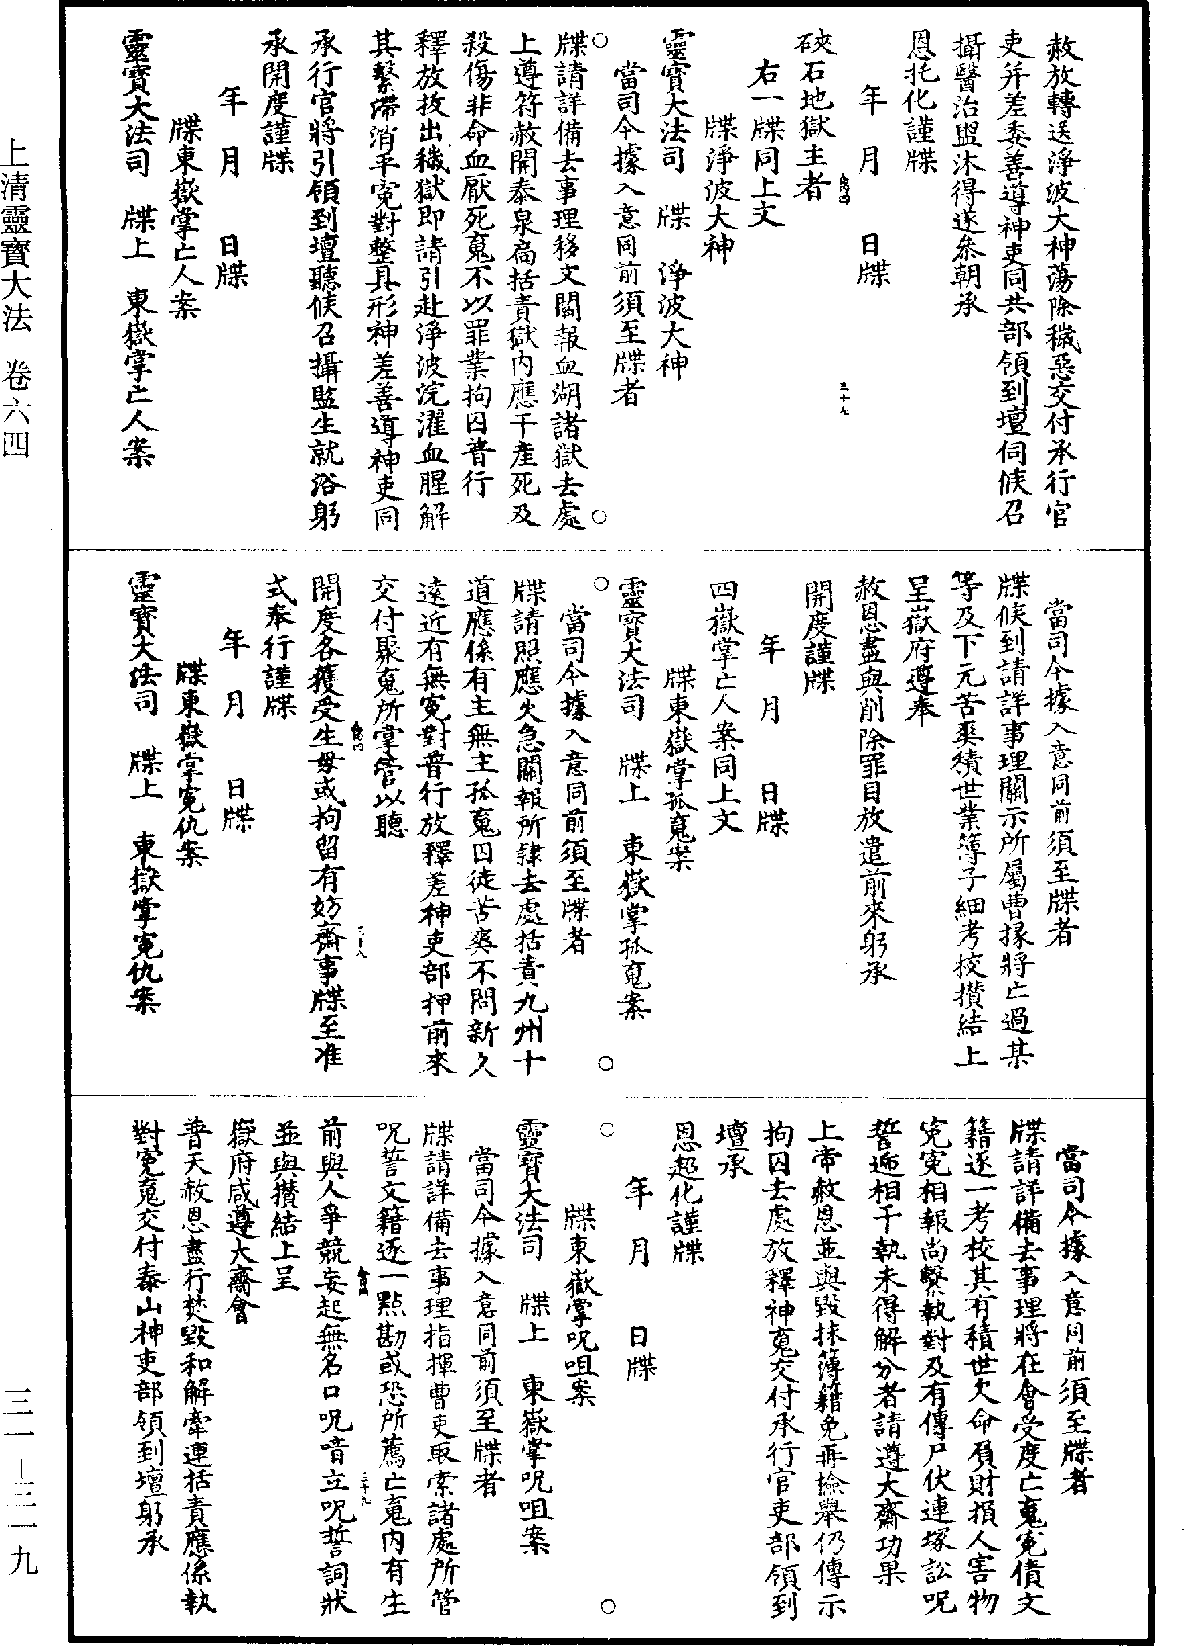 赦放轉送淨波大神蕩除穢惡交付承行官
吏并差委善導神吏同共部領到壇伺候召
攝醫治盥沐得遂叅朝承
恩托化謹牒
年　月　日牒
硤石地獄主者
右一牒同上文
牒淨波大神
靈寶大法司　牒　淨波大神
當司今據入意同前須至牒者
牒請詳備去事理移文關報血湖諸獄去處
上遵符赦開泰泉扃括責獄內應干產死及
殺傷非命血厭死䰟不以罪業拘囚普行
釋放拔出穢獄即請引赴淨波浣濯血腥解
其繫滯消平寃對整具形神差善導神吏同
承行官將引領到壇聽候召攝監生就浴躬
承開度謹牒
年　月　日牒
牒東嶽掌亡人案
靈寶大法司　牒上　東嶽掌亡人案
當司今據入意同前須至牒者
牒候到請詳事理關示所屬曹掾將亡過某
等及下元苦爽積世業簿子細考校攢結上
呈嶽府遵奉
赦恩盡與削除罪目放遣前來躬承
開度謹牒
年　月　日牒
四嶽掌亡人案同上文
牒東嶽掌孤䰟案
靈寶大法司　牒上　東嶽掌孤䰟案
當司今據入意同前須至牒者
牒請照應火急關報所隷去處括責九州十
道應係有主無主孤䰟囚徒苦爽不問新久
遠近有無寃對普行放釋差神吏部押前來
交付聚䰟所掌管以聽
開度各獲受生毋或拘留有妨齋事牒至准
式奉行謹牒
年　月　日牒
牒東嶽掌寃仇案
靈寶大法司　牒上　東嶽掌寃仇案
當司今據入意同前須至牒者
牒請詳備去事理將在會受度亡䰟寃債文
籍逐一考校其有積世欠命負財損人害物
寃寃相報尚繫執對及有傳尸伏連塚訟呪
誓遞相干執未得解分者請遵大齋功果
上帝赦恩並與毀抹簿籍免再撿舉仍傳示
拘囚去處放釋神䰟交付承行官吏部領到
壇承
恩超化謹牒
年　月　日牒
牒東嶽掌呪咀案
靈寶大法司　牒上　東嶽掌呪咀案
當司今據入意同前須至牒者
牒請詳備去事理指揮曹吏取索諸處所管
呪誓文籍逐一點勘或恐所薦亡䰟內有生
前與人爭競妄起無名口呪音立呪誓詞狀
並與攢結上呈
嶽府咸遵大齋會
普天赦恩盡行焚毀和解牽連括責應係執
對寃䰟交付泰山神吏部領到壇躬承
上清靈寶大法　卷六四
三一－三一九